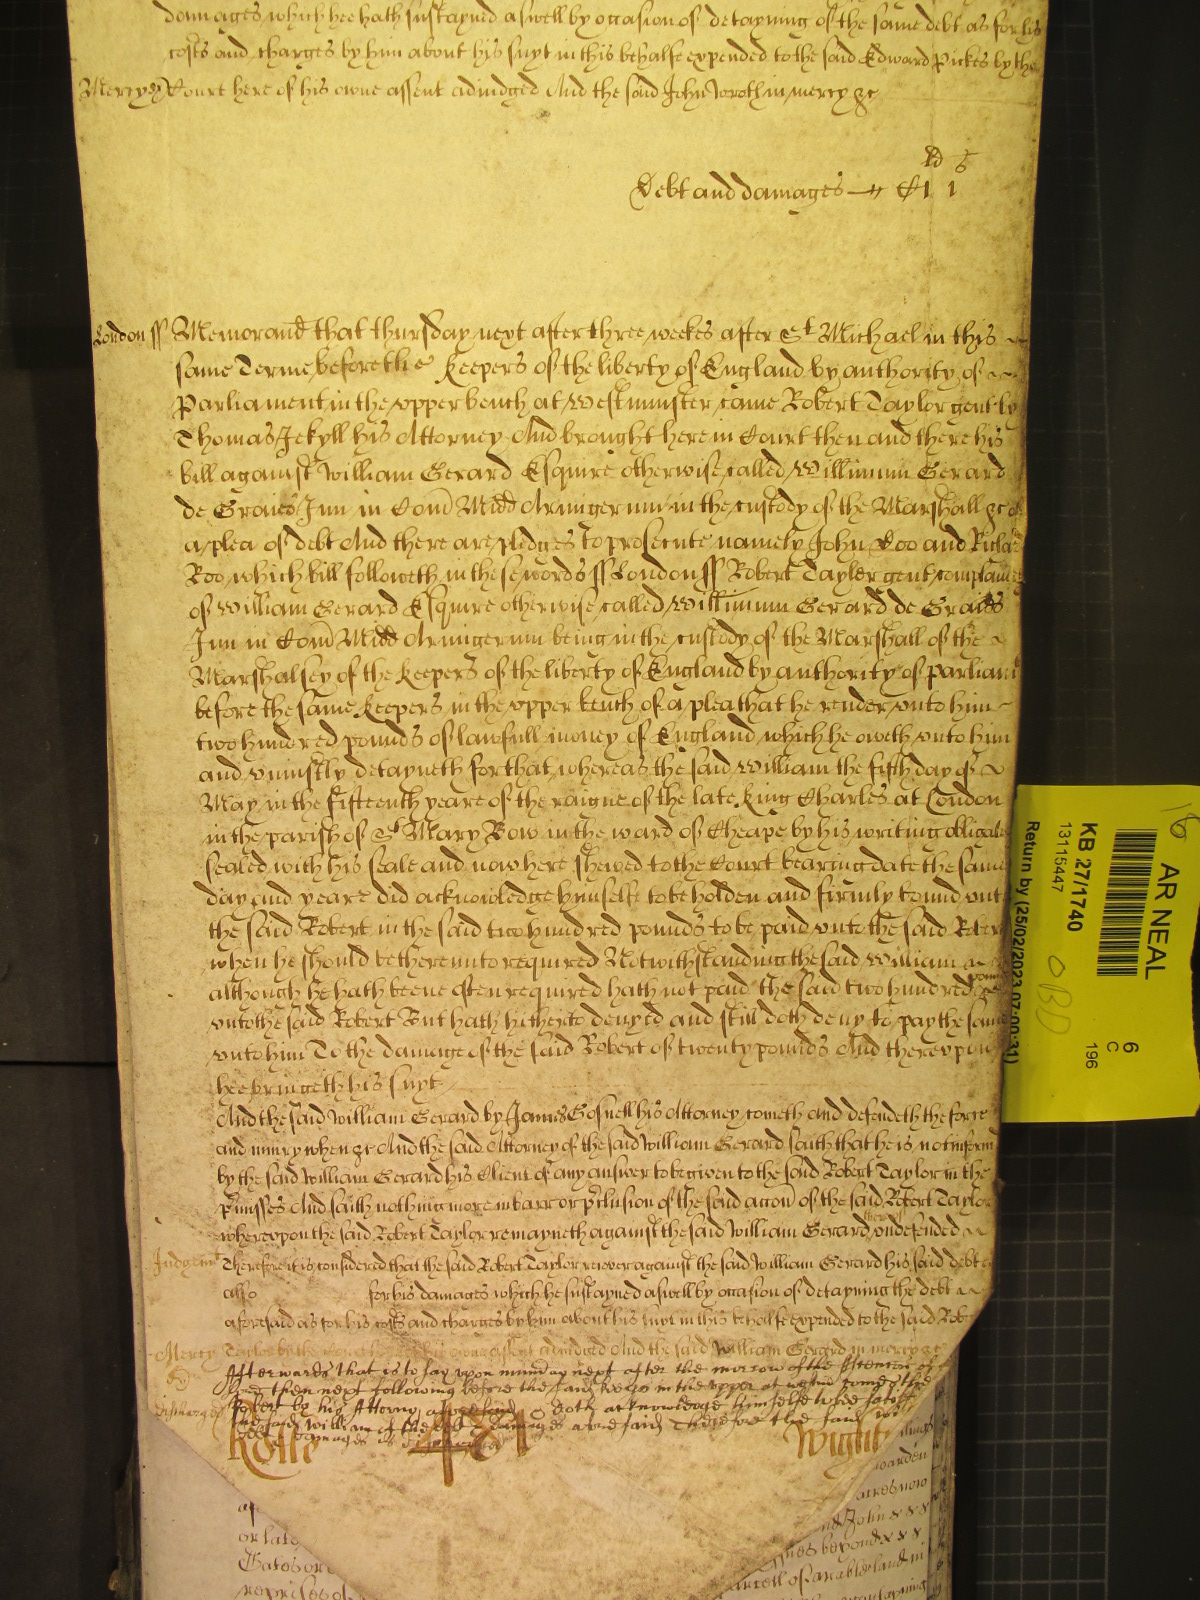 damages which hee hath sustayned aswell by occasion of detayning of the same debt as for his
costs and charges by him about his suyt in this behalfe expended to the said Edward Pickes by the
Mercy Court here of his owne assent adiudged And the said John Wroth in mercy &c
Debt and damages
London ss Memorand that thursday next after three weekes after St Michael in this
same Terme before the Keepers of the liberty of England by authority of
Parliament in the upper bench at Westminster came Robert Taylor gent by
Thomas Jekyll his Attorney And brought here in Court then and there his
bill against William Gerard Esquire otherwise called Willimum Gerard
de Graies Inn in Com Midd Armigerum in the custody of the Marshall &c of
a plea of debt And there are pledges to prosecute namely John Doo and Richard
Roo which bill followeth in these words ss London ss Robert Tayler gent complaines
of William Gerard Esquire otherwise called Willimum Gerard de Graies
Inn in Com Midd Armigerum being in the custody of the Marshall of the
Marshalsey of the Keepers of the liberty of England by authority of Parliamt
before the same Keepers in the upper bench of a plea that he render unto him
two hundred pounds of lawfull money of England which he oweth unto him
and uniustly detayneth for that whereas the said William the fifth day of
May in the fifteenth yeare of the raigne of the late King Charles at London
in the parish of St Mary Bow in the ward of Cheape by his writing obligat
sealed with his seale and now here shewed to the Court bearing date the same
day and yeare did acknowledge himselfe to be holden and firmly bound unto
the said Robert in the said two hundred pounds to be paid unto the said Robert
when he should be thereunto required Notwithstanding the said William
although he hath beene often required hath not paid the said two hundred pounds
unto the said Robert But hath hitherto denyed and still doth deny to pay the same
unto him To the damage of the said Robert of twenty pounds And thereupon
hee bringeth his suyt
And the said William Gerard by James Gosnell his Attorney cometh And defendeth the force
and iniury when &c And the said Attorney of the said William Gerard saith that he is not informed
by the said William Gerard his Client of any answer to be given to the said Robert Taylor in the
pmisses And saith nothing more in barr or pclusion of the said accon of the said Robert Taylor
whereupon the said Robert Taylor remayneth against the said William Gerard undefended
Judgemt Therefore it is considered that the said Robert Taylor recover against the said William Gerard his said debt
also for his damages which he sustayned aswell by occasion of detayning the debt
aforesaid as for his costs and charges by him about his suyt in this behalfe expended to the said Robert
Mercy Taylor by the Court here of his owne assent adiudged And the said William Gerard in mercy &c
Afterwards that is to say upon munday next after the morrow of the Ascencon of
then next following before the said Keepers in the upper at comes the
Robert by his Attorney aforesaid doth acknowledge himselfe to be satisf
the said William of the debt & damages aforesaid Therefore the said
damages
Rolle Wight
AR NEAL
KB 27/1740
13115447
Return by (25/02/2023 07:00:31)
6
C
196
16
OBD
warden
acres now
and John
beyond
parcell of arable land in
or late
Gates